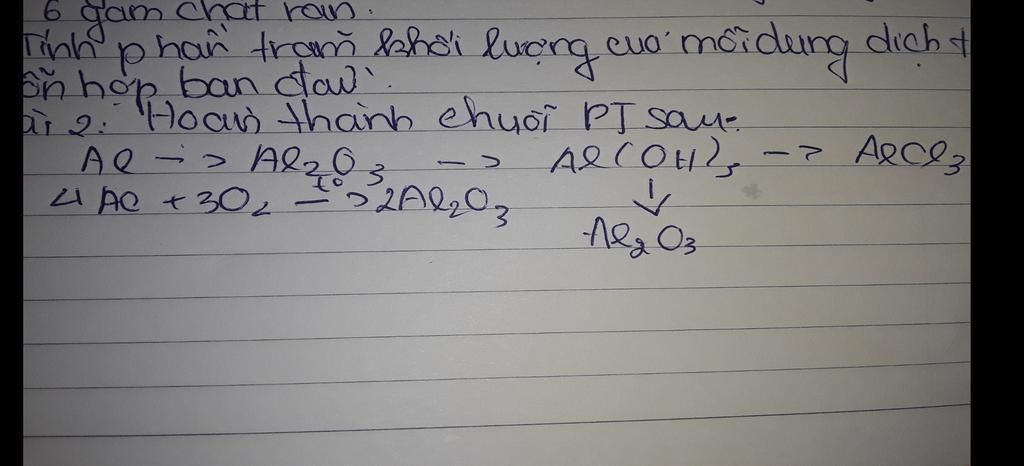 6 gam chất rắn.
Tính phần trăm khối lượng của mỗi dung dịch t
ỗn hợp ban đầu.
ài 2: Hoàn thành chuỗi PT sau:
Al -> Al2O3 -> Al(OH)3 -> AlCl3
4Al + 3O2 -t°-> 2Al2O3 ↓
Al2O3